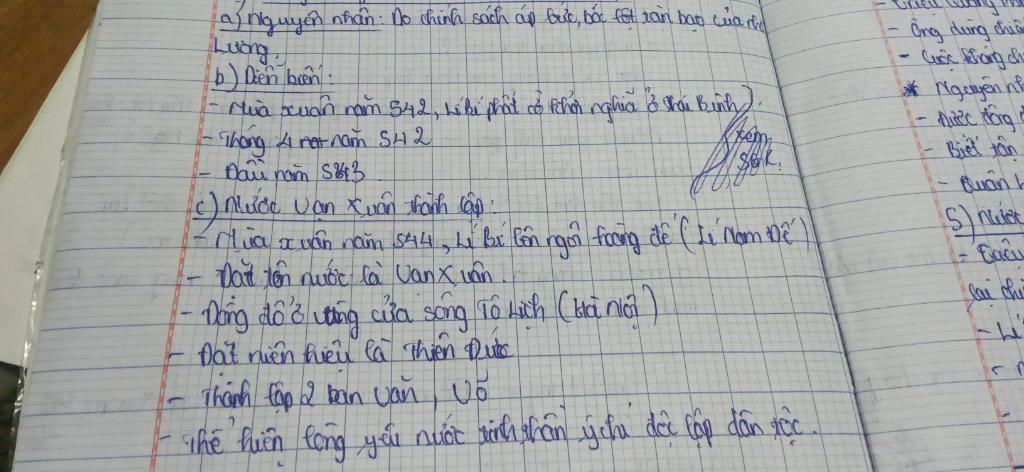 a) Nguyên nhân: Do chính sách áp bức, bóc lột tàn bạo của nhà
Lương.
b) Diễn biến:
- Mùa xuân năm 542, Lí Bí phất cờ khởi nghĩa ở Thái Bình
- Tháng 4 năm 542
- Đầu năm 543
xem
SGK.
c) Nước Vạn Xuân thành lập:
- Mùa xuân năm 544, Lí Bí lên ngôi hoàng đế (Lí Nam Đế)
- Đặt tên nước là Vạn Xuân.
- Đóng đô ở vùng cửa sông Tô Lịch (Hà Nội)
- Đặt niên hiệu là Thiên Đức
- Thành lập 2 ban Văn, Võ
- Thể hiện lòng yêu nước tinh thần ý chí độc lập dân tộc.
- Ông dùng
- Cuộc kháng
* Nguyên
- Được
- Biết
- Quân
5) Nước
lại
- Lí